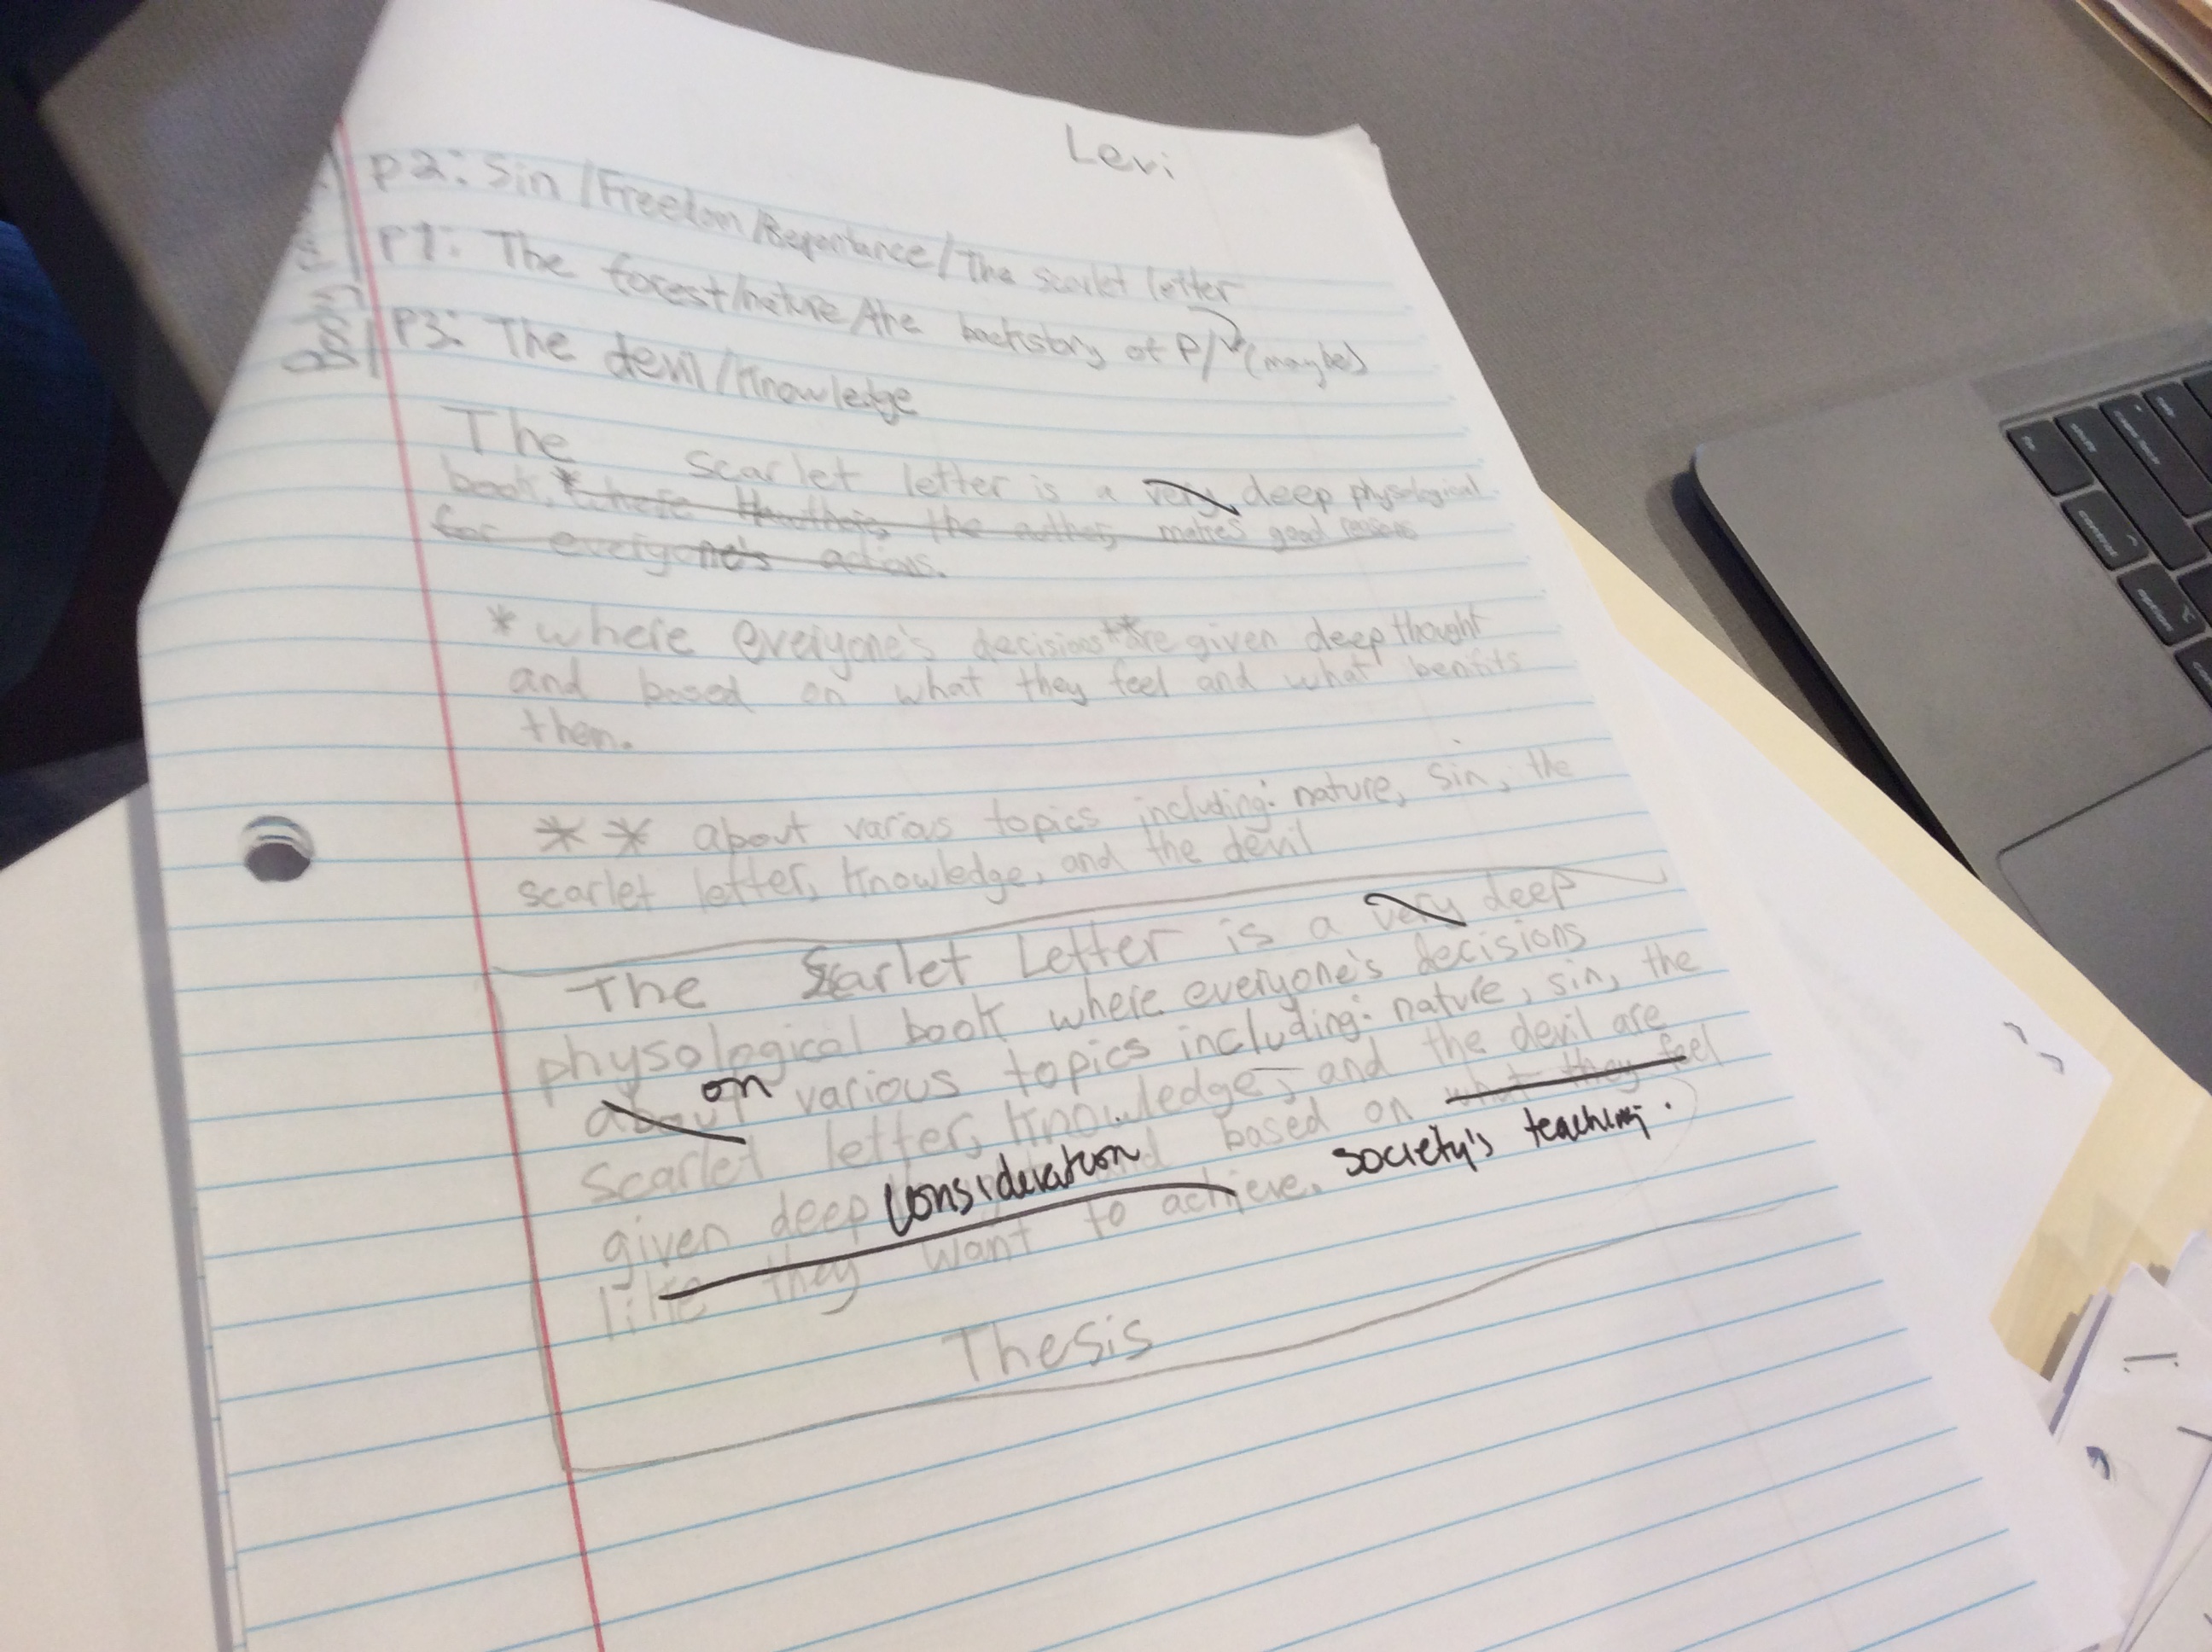 Levi
P2: Sin/Freedom/Repentance/The scarlet letter
P1: The forest/nature/the backstory of P/(maybe)
P3: The devil/Knowledge
The scarlet letter is a very deep physological
book, * where Hawthorne the author, makes good reasons
for everyone's actions.
* where everyone's decisions ** are given deep thought
and based on what they feel and what benifits
them.
** about varios topics including: nature, sin, the
scarlet letter, Knowledge, and the devil
The Scarlet Letter is a very deep
physological book where everyone's decisions
about on various topics including: nature, sin, the
scarlet letter, Knowledge, and the devil are
given deep consideration and based on what they feel
society's teaching.
like they want to achieve.
Thesis